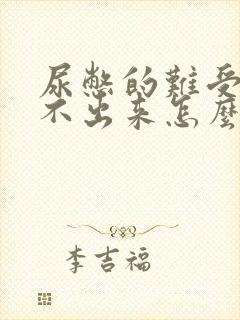 尿憋的難受
不出来怎麼
李吉福